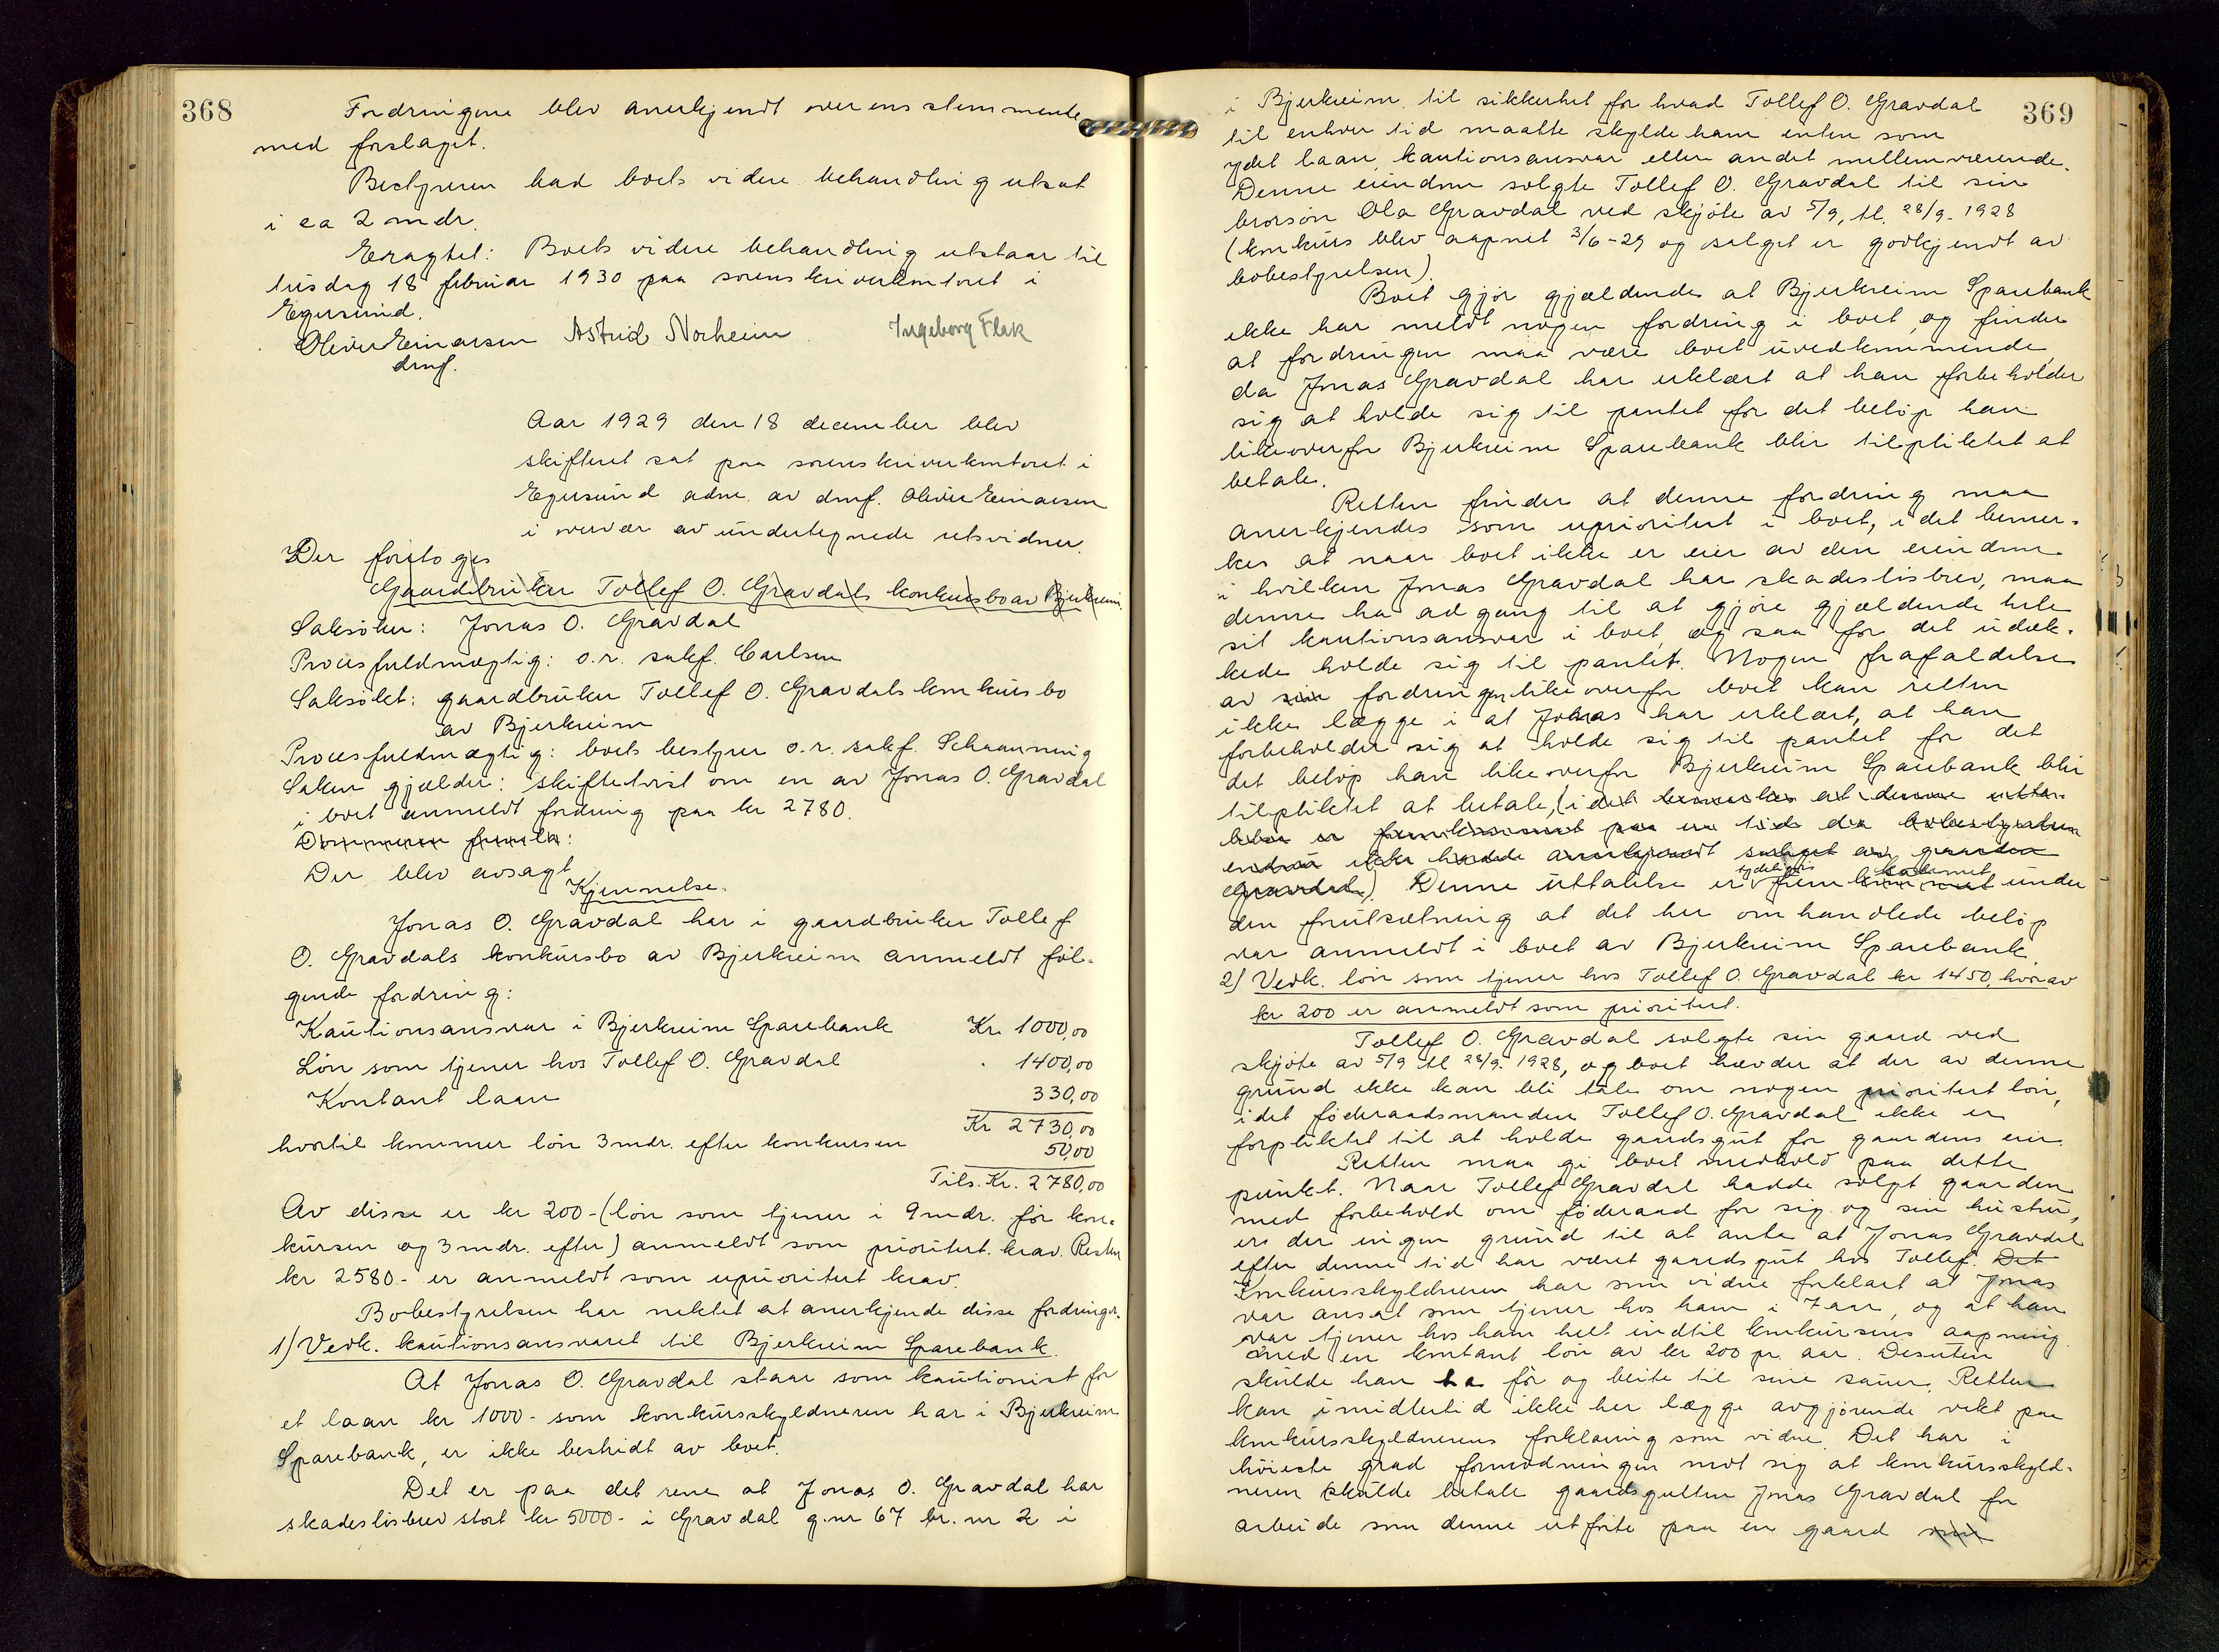 368
Fordringene blev anerkjendt overensstemmende
med forslaget.
Bestyreren bad boets videre behandling utsat
i ca 2 mdr.
Eragtet: Boets videre behandling utstaar til
tirsdag 18 februar 1930 paa sorenskriverkontoret i
Egersund.
Oliver Einarsen Astrid Norheim Ingeborg Flak
dmf.
Aar 1929 den 18 december blev
skifteret sat paa sorenskriverkontoret i
Egersund adm. av dmf. Oliver Einarsen
i overvær av undertegnede retsvidner.
Der foretoges
Gaardbruker Tollef O. Gravdals konkursbo av Bjerkreim
Saksøker: Jonas O. Gravdal
Procesfuldmægtig: o.r. sakf. Carlsen
Saksøkt: gaardbruker Tollef O. Gravdals konkursbo
av Bjerkreim
Procesfuldmægtig: boets bestyrer o.r. sakf. Schaanning
Saken gjælder: skiftetvist om en av Jonas O. Gravdal
i boet anmeldt fordring paa kr 2780.
Dommeren fremla:
Der blev avsagt
Kjennelse.
Jonas O. Gravdal har i gaardbruker Tollef
O. Gravdals konkursbo av Bjerkreim anmeldt føl-
gende fordring:
Kautionsansvar i Bjerkreim Sparebank Kr. 1000,00
Løn som tjener hos Tollef O. Gravdal " 1400,00
Kontant laan 330,00
Kr 2730,00
hvortil kommer løn 3 mdr. efter konkursen 50,00
Tils. Kr. 2780,00
Av disse er kr 200- (løn som tjener i 9 mdr. før kon-
kursen og 3 mdr. efter) anmeldt som prioritert krav. Resten
kr 2580- er anmeldt som uprioritert krav.
Bobestyrelsen har nektet at anerkjende disse fordringer.
1) Vedk. kautionsansvaret til Bjerkreim Sparebank.
At Jonas O. Gravdal staar som kautionist for
et laan kr 1000- som konkursskyldneren har i Bjerkreim
Sparebank, er ikke bestridt av boet.
Det er paa det rene at Jonas O. Gravdal har
skadesløsbrev stort kr 5000- i Gravdal g.nr 67 br. nr 2 i
369
i Bjerkreim til sikkerhet for hvad Tollef O. Gravdal
til enhver tid maatte skylde ham enten som
ydet laan, kautionsansvar eller andet mellemværende.
Denne eiendom solgte Tollef O. Gravdal til sin
brorsøn Ola Gravdal ved skjøte av 5/9, tl. 28/9- 1928
(konkurs blev aapnet 3/6-29 og salget er godkjendt av
bobestyrelsen).
Boet gjør gjældende at Bjerkreim Sparebank
ikke har meldt nogen fordring i boet, og finder
at fordringen maa være boet uvedkommende,
da Jonas Gravdal har erklært at han forbeholder
sig at holde sig til pantet for det beløp han
likeoverfor Bjerkreim Sparebank blir tilpliktet at
betale.
Retten finder at denne fordring maa
anerkjendes som uprioritert i boet, idet bemer-
kes at naar boet ikke er eier av den eiendom
i hvilken Jonas Gravdal har skadesløsbrev, maa
denne ha adgang til at gjøre gjældende hele
sit kautionsansvar i boet, og saa for det udæk-
kede holde sig til pantet. Nogen frafaldelse
av sin fordringen likeoverfor boet kan retten
ikke lægge i at Jonas har erklært, at han
forbeholder sig at holde sig til pantet for det
det beløp han likeoverfor Bjerkreim Sparebank blir
tilpliktet at betale, (idet bemerkes at denne utta-
lelse er fremkommet paa en tid da bobestyrelsen
endnu ikke hadde anerkjendt salget av gaarden
Gravdal). Denne uttalelse er tydeligvis fremkommet kommet under
den forutsætning at det her omhandlede beløp
var anmeldt i boet av Bjerkreim Sparebank.
2) Vedk. løn som tjener hos Tollef O. Gravdal kr 1450, hvorav
kr 200 er anmeldt som prioritert.
Tollef O. Gravdal solgte sin gaard ved
skjøte av 5/9 tl 28/9. 1928, og boet hævder at der av denne
grund ikke kan bli tale om nogen prioritert løn,
idet føderaadsmanden Tollef O. Gravdal ikke er
forpliktet til at holde gaardsgut for gaardens eier.
Retten maa gi boet medhold paa dette
punkt. Naar Tollef Gravdal hadde solgt gaarden
med forbehold om føderaad for sig og sin hustru,
er der ingen grund til at anta at Jonas Gravdal
efter denne tid har været gaardsgut hos Tollef. Det
Konkursskyldneren har som vidne forklart at Jonas
var ansat som tjener hos ham i 7 aar, og at han
var tjener hos ham helt indtil konkursens aapning
med en kontant løn av kr 200 pr. aar. Desuten
skulde han ha fôr og beite til sine sauer. Retten
kan imidlertid ikke her lægge avgjørende vekt paa
konkursskyldnerens forklaring som vidne. Det har i
høieste grad formodningen mot sig at konkursskyld-
neren skulde betale gaardsgutten Jonas Gravdal for
arbeide som denne utførte paa en gaard som